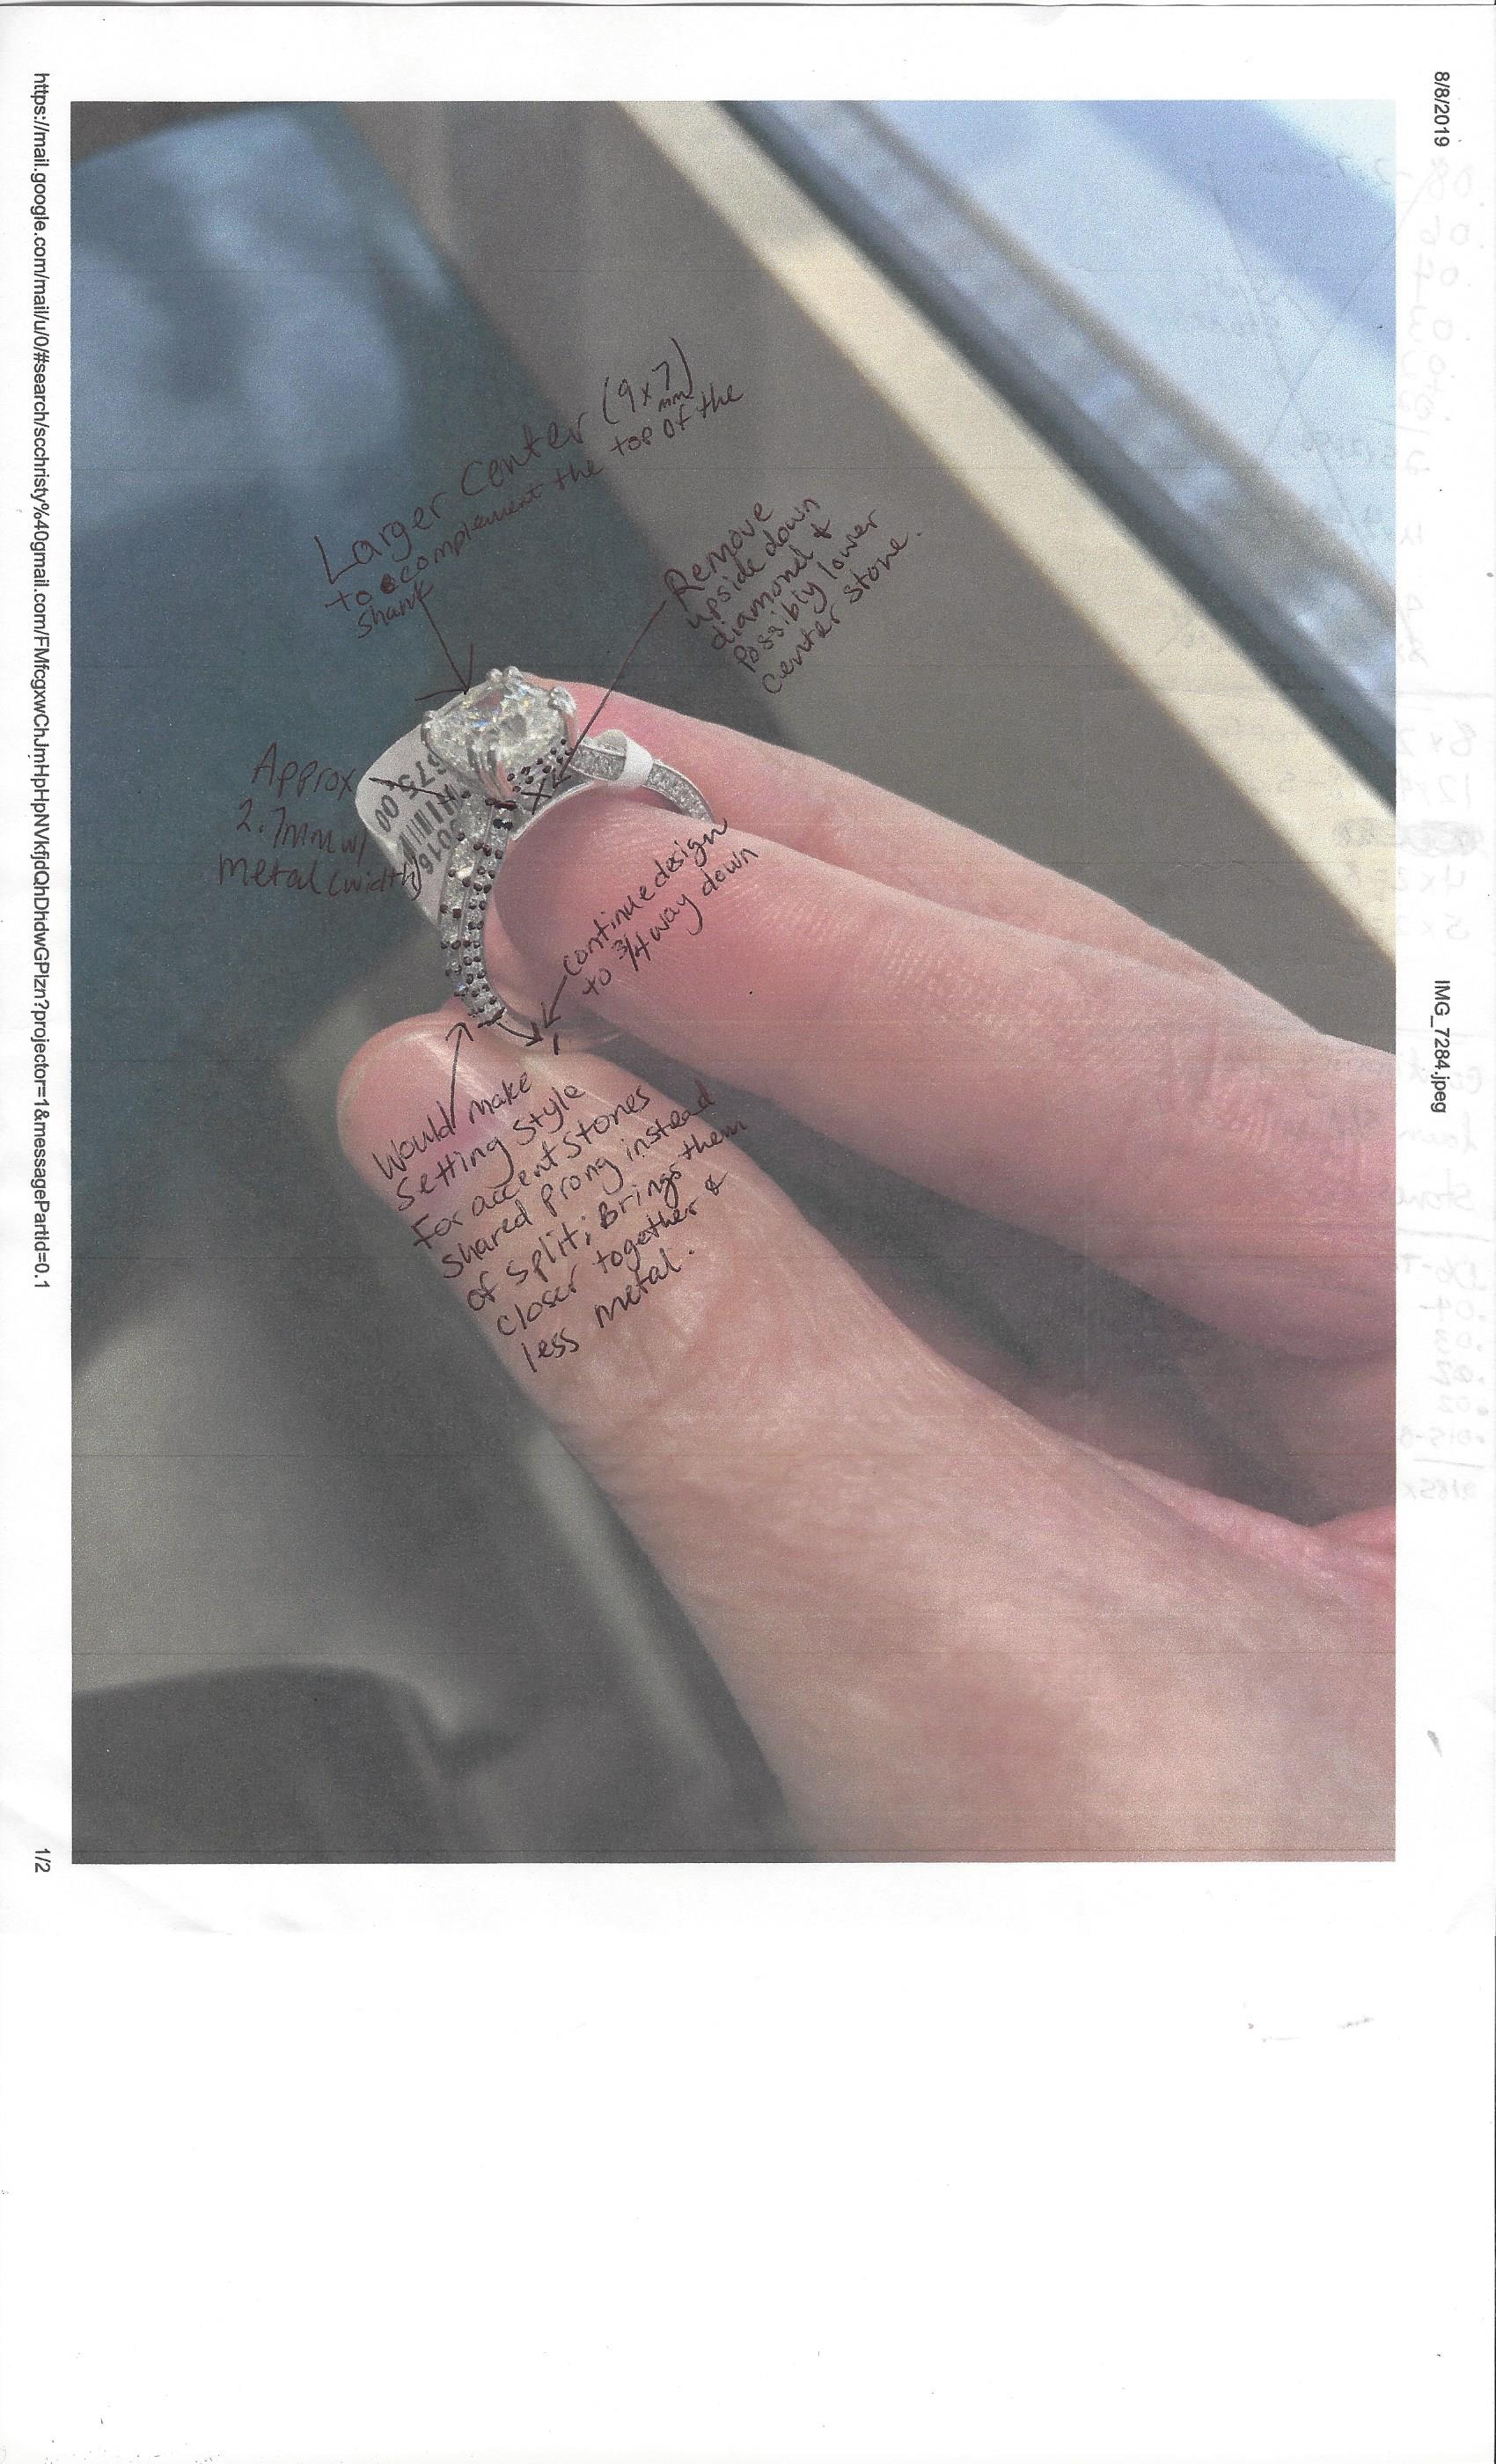 8/8/2019
IMG_7284.jpeg
Larger Center (9x7)
mm
to complement the top of the
shank
Remove
upside down
diamond &
possibly lower
center stone.
Approx
2.7mm w/
metal (width)
675.00
2016
continue design
to 3/4 way down
Would make
setting style
For accent stones
shared prong instead
of split; Brings them
closer together &
less metal.
https://mail.google.com/mail/u/0/#search/scchristy%40gmail.com/FMfcgxwChJmHpHpNVkfjdQhDhdwGPlzn?projector=1&messagePartId=0.1
1/2